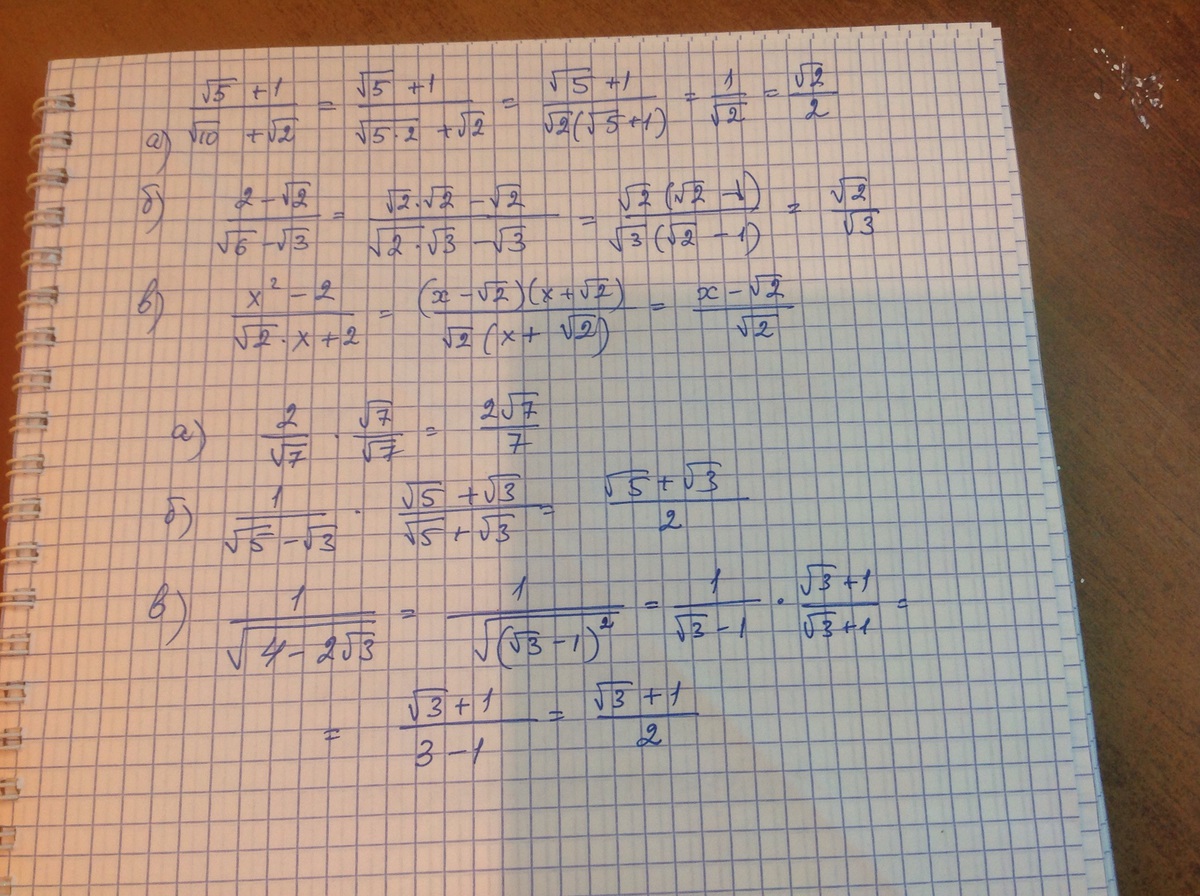 а) (√5 + 1)/(√10 + √2) = (√5 + 1)/(√(5·2) + √2) = (√5 + 1)/(√2(√5+1)) = 1/√2 = √2/2
б) (2 - √2)/(√6 - √3) = (√2·√2 - √2)/(√2·√3 - √3) = (√2(√2 - 1))/(√3(√2 - 1)) = √2/√3
в) (x² - 2)/(√2·x + 2) = ((x - √2)(x + √2))/(√2(x + √2)) = (x - √2)/√2
а) 2/√7 · √7/√7 = 2√7/7
б) 1/(√5 - √3) · (√5 + √3)/(√5 + √3) = (√5 + √3)/2
в) 1/√(4 - 2√3) = 1/√((√3 - 1)²) = 1/(√3 - 1) · (√3 + 1)/(√3 + 1) =
= (√3 + 1)/(3 - 1) = (√3 + 1)/2